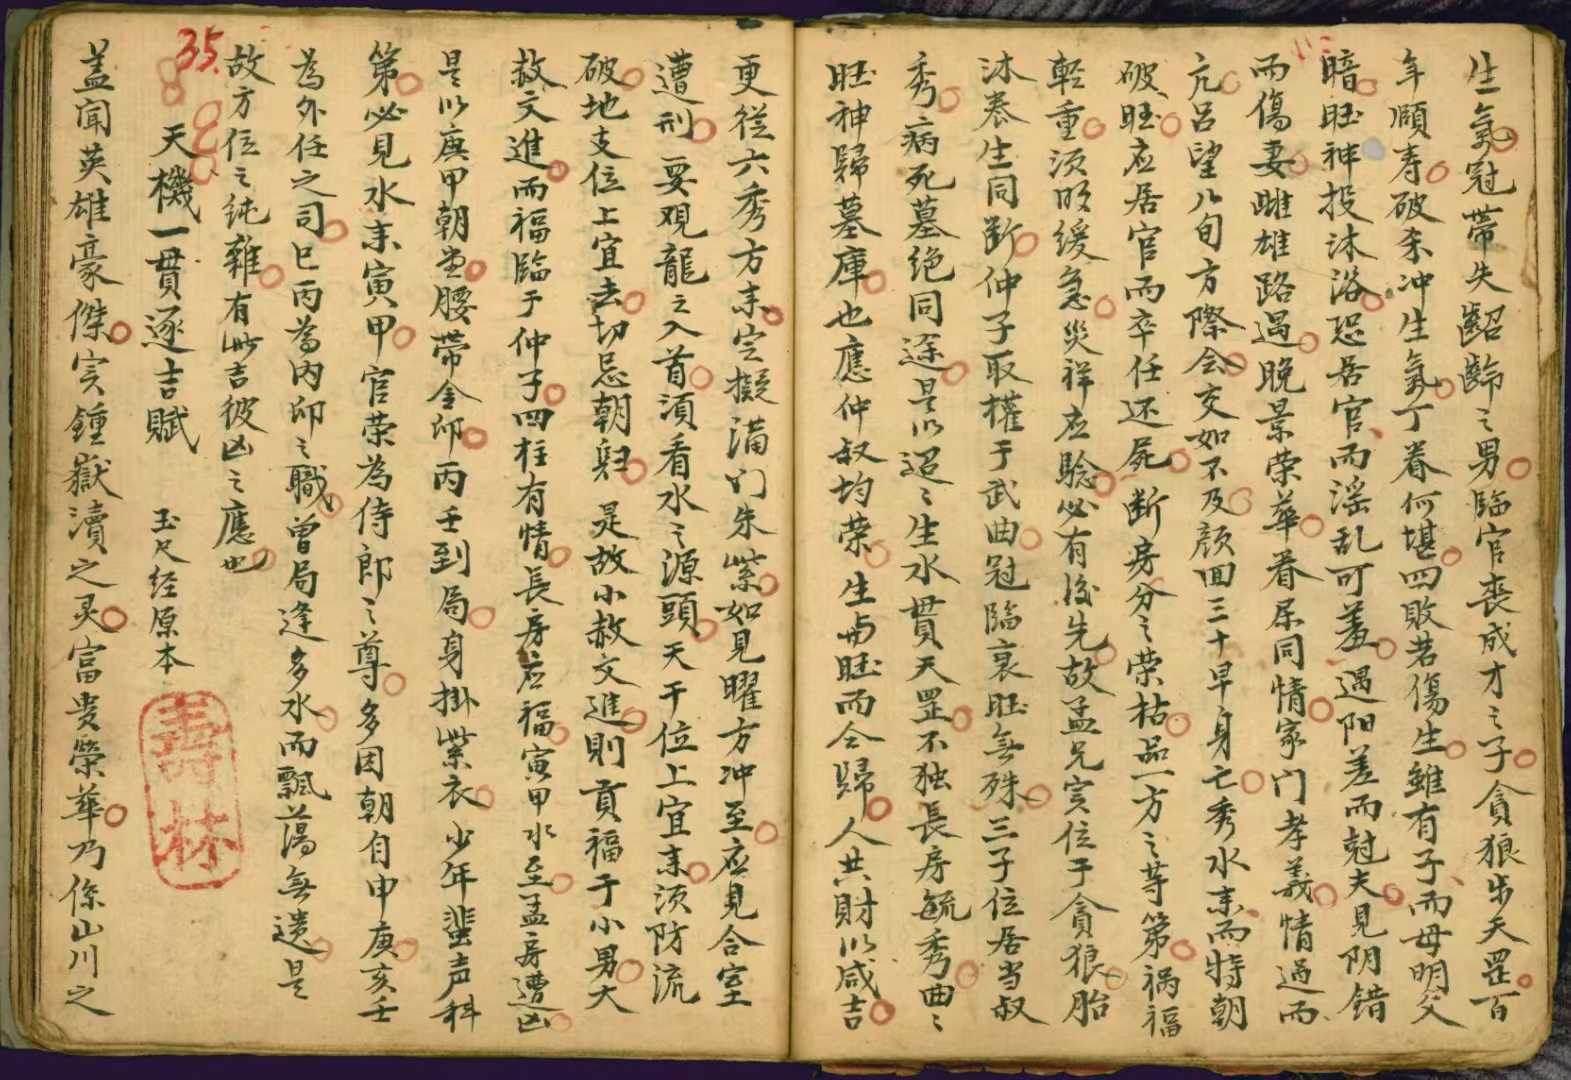 生氣冠帶失齠齡之男臨官喪成才之子貪狼步天罡百
年頤寿破杀冲生氣丁眷何堪四敗若傷生雖有子而母明父
暗旺神投沐浴恐居官而滛乱可羞遇阳差而尅夫見阴错
而傷妻雌雄路遇晚景荣華眷屈同情家门孝義情過而
亢呂望八旬方際会交如不及颜回三十早身亡秀水来而特朝
破旺应居官而卒任还屍断房分之荣枯品一方之等第祸福
輕重须明缓急災祥应驗必有後先故孟兄寔位于貪狼胎
沐养生同断仲子取權于武曲冠臨衰旺無殊三子位居当叔
秀病死墓绝同途是以迢々生水貫天罡不独長房毓秀曲々
旺神歸墓庫也應仲叔均荣生与旺而仝歸人共財以咸吉
更從六秀方来定擬满门朱紫如見曜方冲至应見合室
遭刑要观龍之入首須看水之源頭天干位上宜来须防流
破地支位上宜去切忌朝归是故小赦文進則貢福于小男大
赦文進而福臨于仲子四柱有情長房应福寅甲水至孟房遭凶
是以庚甲朝堂腰帶金印丙壬到局身掛紫衣少年蜚声科
第必見水来寅甲官荣為侍郎之尊多因朝自申庚亥壬
為外任之司巳丙為内印之職曾局逢多水而飄蕩無遗是
故方位之純雜有此吉彼凶之應也
35.
天機一貫逐吉賦 玉尺经原本
壽林
盖聞英雄豪傑寔鍾嶽瀆之灵富贵榮華乃係山川之